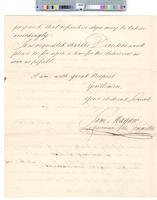 proposed, that definitive steps may be taken
accordingly.
It is requested that the Directors will
please to fix upon a time for the conference as
soon as possible.
I am with great Respect
Gentlemen,
Your obedient Servant